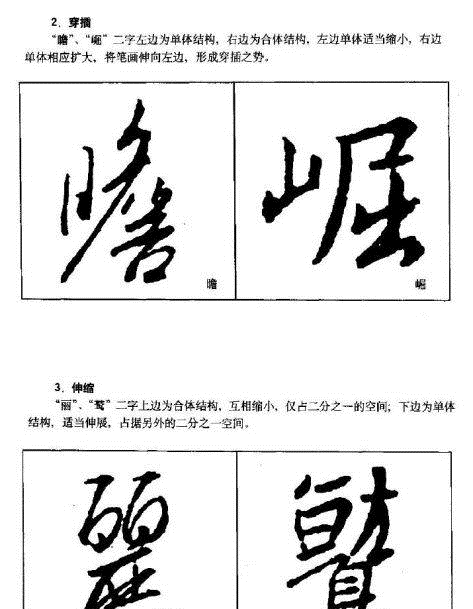 2．穿插
“瞻”、“崛”二字左边为单体结构，右边为合体结构，左边单体适当缩小，右边
单体相应扩大，将笔画伸向左边，形成穿插之势。
瞻 崛
瞻 崛
3．伸缩
“丽”、“”二字上边为合体结构，互相缩小，仅占二分之一的空间；下边为单体
结构，适当伸展，占据另外的二分之一空间。